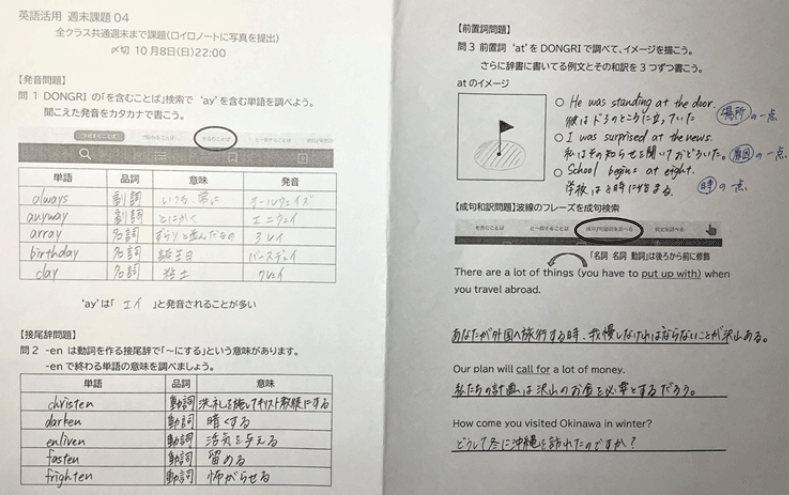 英語活用 週末課題 04
全クラス共通週末まで課題(ロイロノートに写真を提出)
〆切 10月8日(日)22:00
【発音問題】
問1 DONGRI の「を含むことば」検索で 'ay'を含む単語を調べよう。
聞こえた発音をカタカナで書こう。
単語 品詞 意味 発音
always 副詞 いつも、常に オールウェイズ
anyway 副詞 とにかく エニウェイ
array 名詞 ずらりと並んだもの アレイ
birthday 名詞 誕生日 バースデェイ
clay 名詞 粘土 クレイ
'ay'は「 エイ 」と発音されることが多い
【接尾辞問題】
問2 -en は動詞を作る接尾辞で「~にする」という意味があります。
-enで終わる単語の意味を調べましょう。
単語 品詞 意味
christen 動詞 洗礼を施してキリスト教徒にする
darken 動詞 暗くする
enliven 動詞 活気を与える
fasten 動詞 留める
frighten 動詞 怖がらせる
【前置詞問題】
問3 前置詞 'at'をDONGRIで調べて、イメージを描こう。
さらに辞書に書いてる例文とその和訳を3つずつ書こう。
atのイメージ
○ He was standing at the door.
彼はドアのところに立っていた 場所の一点
○ I was surprised at the news.
私はその知らせを聞いておどろいた。 原因の一点
○ School begins at eight.
学校は8時に始まる。 時の一点
【成句和訳問題】波線のフレーズを成句検索
を含むことば と一致することば 成句の見出しを調べる 例文を調べる
「名詞 名詞 動詞」は後ろから前に修飾
There are a lot of things (you have to put up with) when
you travel abroad.
あなたが外国へ旅行する時、我慢しなければならないことが沢山ある。
Our plan will call for a lot of money.
私たちの計画は沢山のお金を必要とするだろう。
How come you visited Okinawa in winter?
どうして冬に沖縄を訪れたのですか?